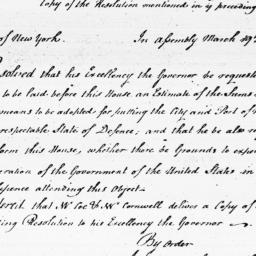 Copy of the Resolution mentioned in ye preceding
of New York. In Assembly March 29
solved that his Excellency the Governor be reques
to be laid before this House, an Estimate of the Sums
means to be adopted for putting the City and Port of
respectable State of Defence; and that he be also re
form this House, whether there be Grounds to expe
eration of the Government of the United States in
pence attending this Object.
dered that Mr Coe & Mr Cornwell deliver a Copy of
ing Resolution to his Excellency the Governor
By order